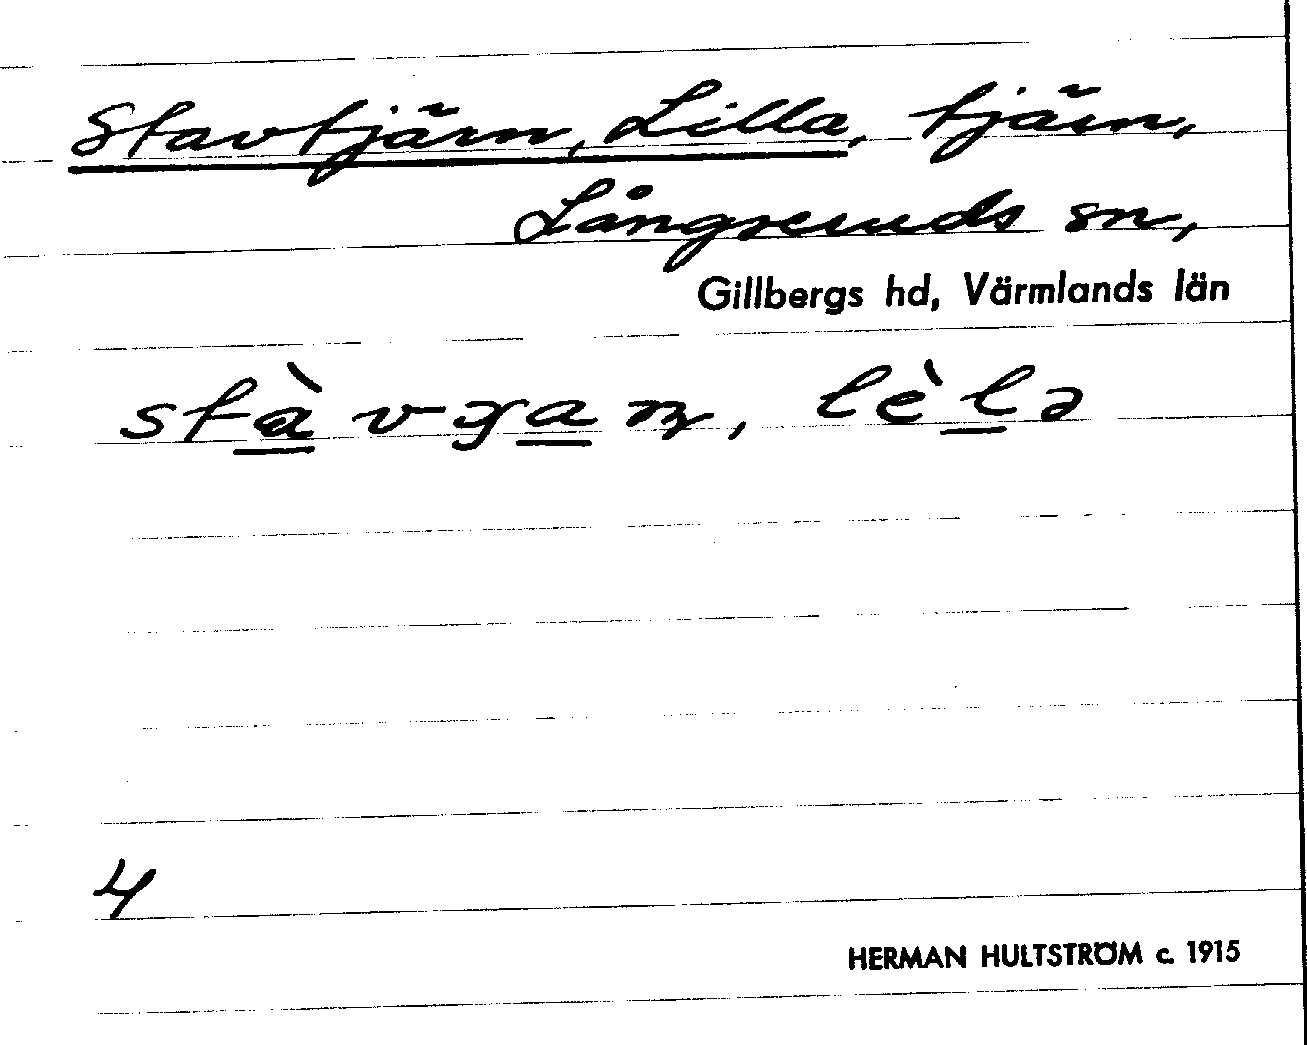 Stavtjärn, Lilla, tjärn,
Långseruds sn,
Gillbergs hd, Värmlands län
stàvɣaɳ, lèlə
4
HERMAN HULTSTRÖM c. 1915